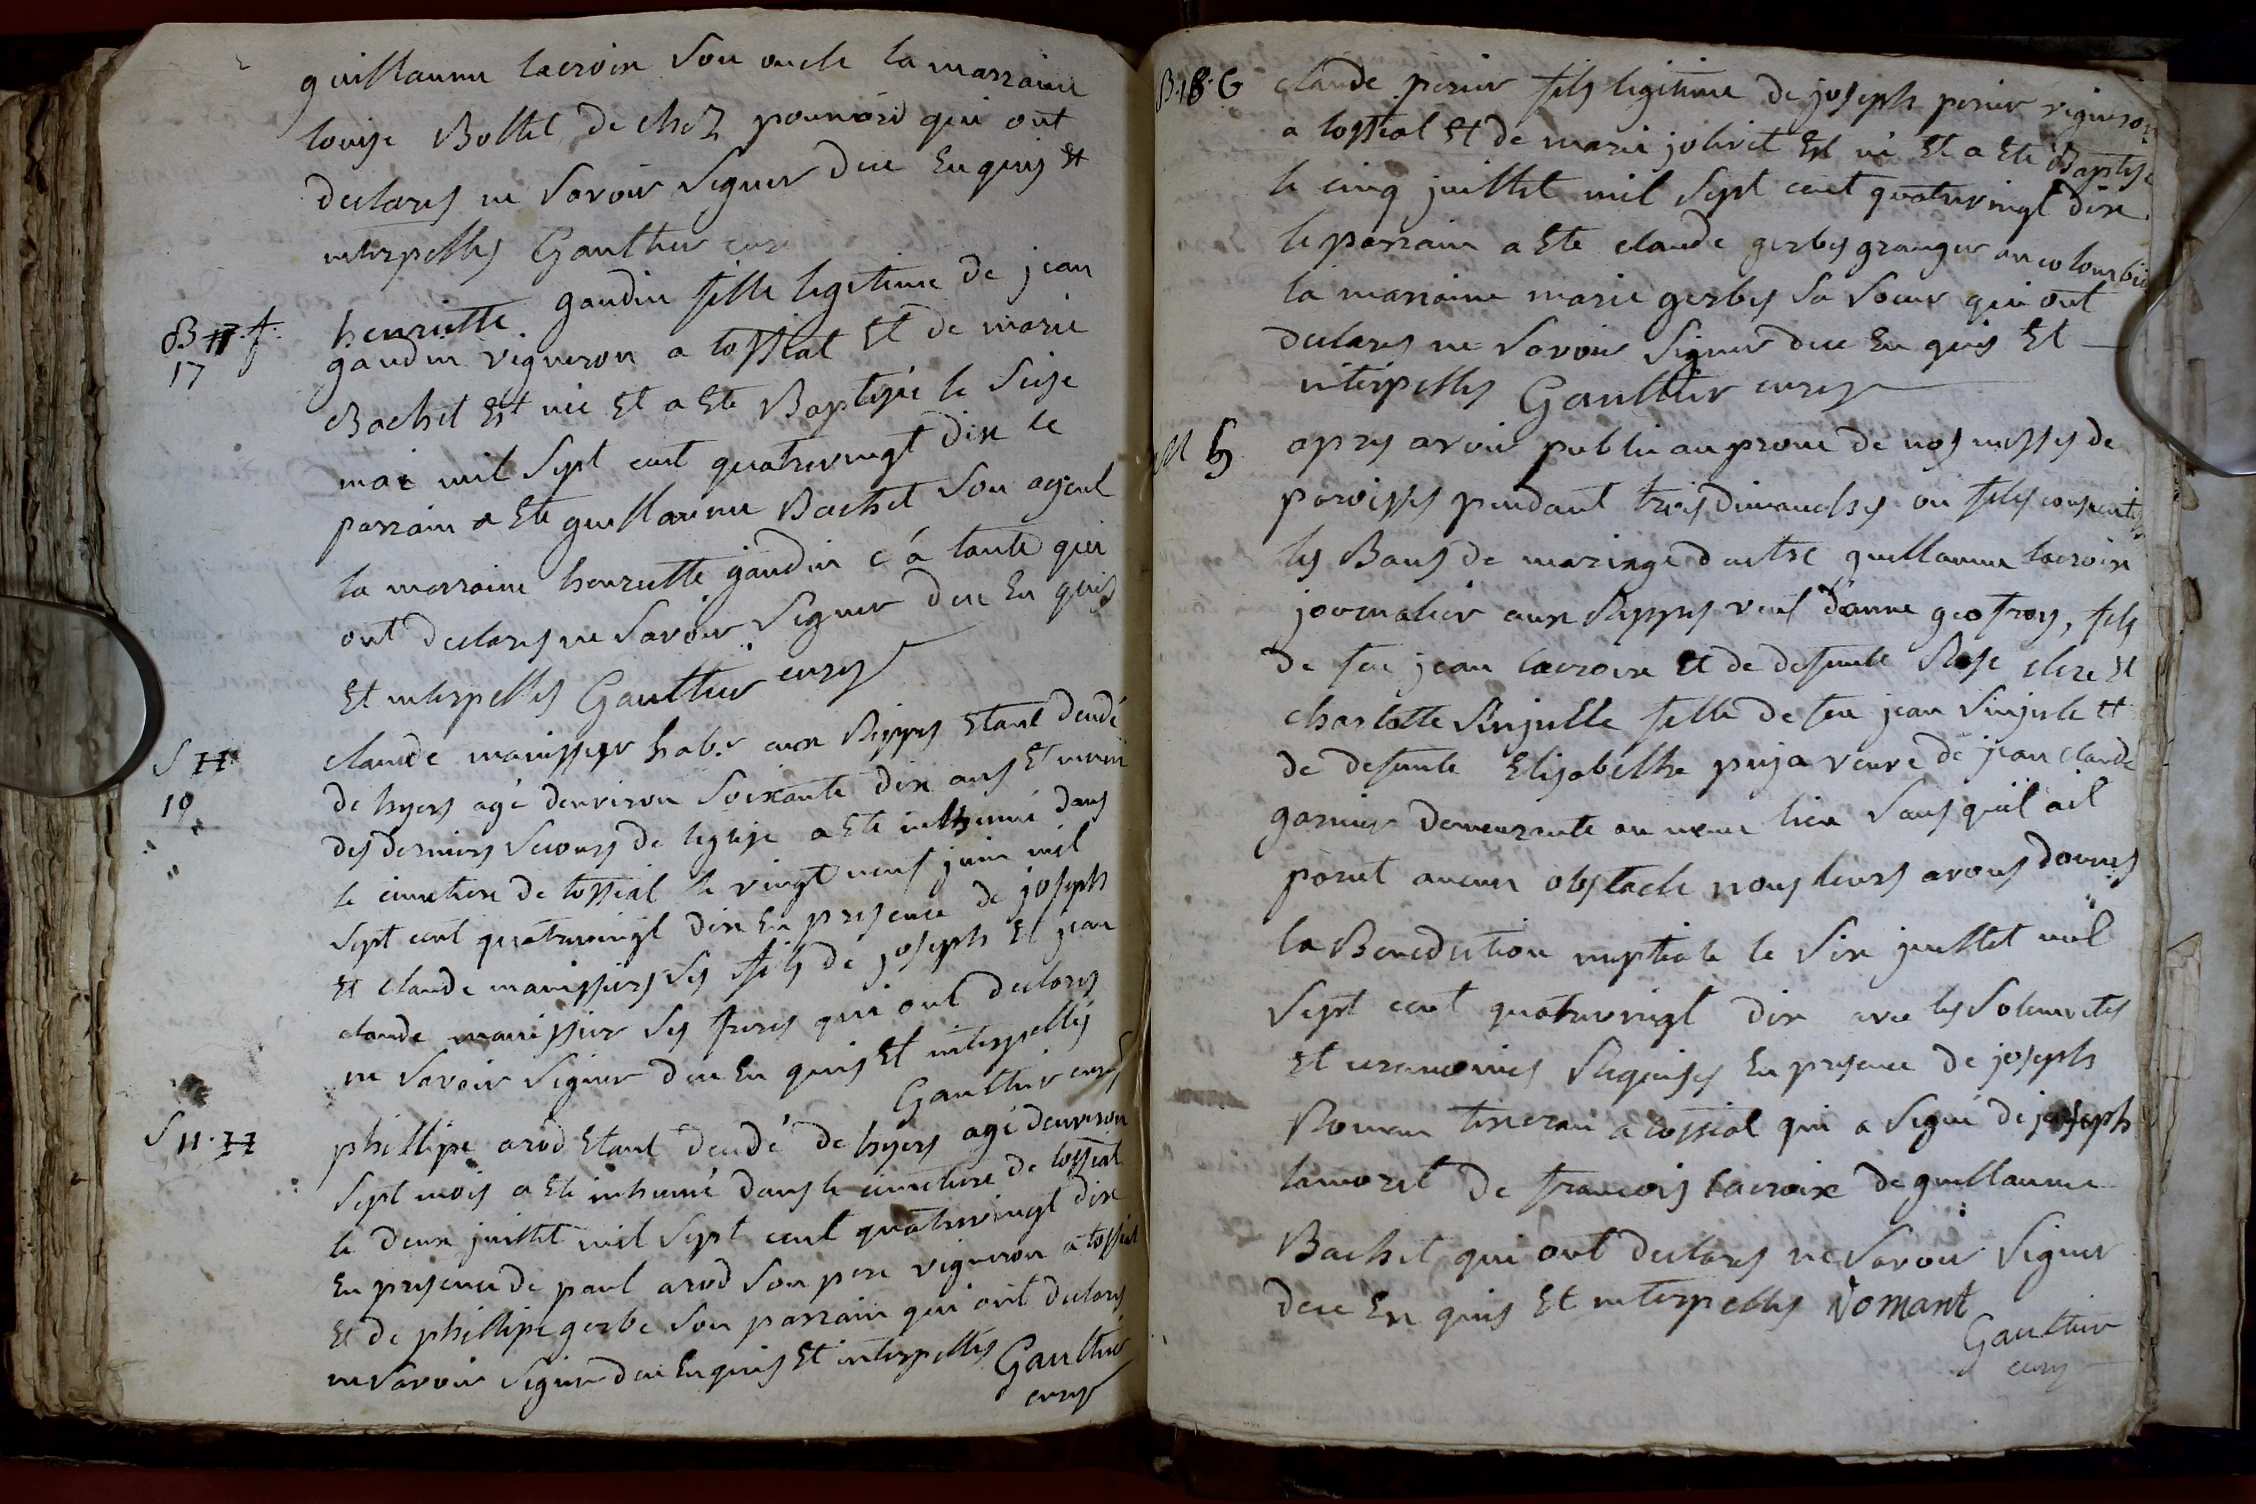 guillaume lacroix son oncle la marraine
louise Bollet de chez pouvoird qui ont
declarés ne savoir signer due Enquis Et
interpellés Gaulthier curé
B 17. f.
17
henriette gaudin fille legitime de jean
gaudin vigneron a tossiat Et de marie
Bachet Est née Et a Eté Baptisée le seise
mai mil sept cent quatrevingt dix le
parrain a Eté guillaume Bachet son ayeul
la marraine henriette gaudin s'a tante qui
ont declarés ne savoir signer due En quis
Et interpellés Gaulthier curé
S 11
10
claude manissier hab.r aux Rippes Etant decedé
de hyers agé denviron soixante dix ans Et muni
des derniers secours de leglise a Eté inhumé dans
le cimetiere de tossiat le vingt neuf juin mil
sept cent quatrevingt dix En presence de joseph
Et claude manissiers ses fils de joseph Et jean
claude manissier ses freres qui ont declarés
ne savoir signer due En quis Et interpellés
Gaulthier curé
S 11. 11
phillipe arod Etant decedé de hyers agé denviron
sept mois a Eté inhumé dans le cimetiere de tossiat
le deux juillet mil sept cent quatrevingt dix
En presence de paul arod son pere vigneron a tossiat
Et de phillipe gerbe son parrain qui ont declarés
ne savoir signer due Enquis Et interpellés Gaulthier
curé
B. 18. G
claude perier fils legitime de joseph perier vigneron
a tossiat Et de marie jolivet Est né Et a Eté Baptisé
le cinq juillet mil sept cent quatrevingt dix
le parrain a Eté claude gerbes granger au colombier
la marraine marie gerbes sa soeur qui ont
declarés ne savoir signer due En quis Et
interpellés Gaulthier curé
M 5
apres avoir publié au prone de nos messes de
paroisses pendant trois dimanches ou fetes consecutifs
les Bans de mariage dentre guillaume lacroix
journalier aux Rippes veuf d'anne geofroy, fils
de feu jean lacroix Et de defunte Rose clerc Et
charlotte Rinjulle fille de feu jean Rinjule Et
de defunte Elisabethe puja veuve de jean claude
garnier demeurante au meme lieu sans qu'il ait
parut aucun obstacle nous leurs avons donnés
la Benediction nuptiale le six juillet mil
sept cent quatrevingt dix avec les solemnités
Et ceremonies Requises En presence de joseph
Roman tixeran a tossiat qui a signé de joseph
lamoret de francois lacroix de guillaume
Bachet qui ont declarés ne savoir signer
due En quis Et interpellés Romant
Gaulthier
curé